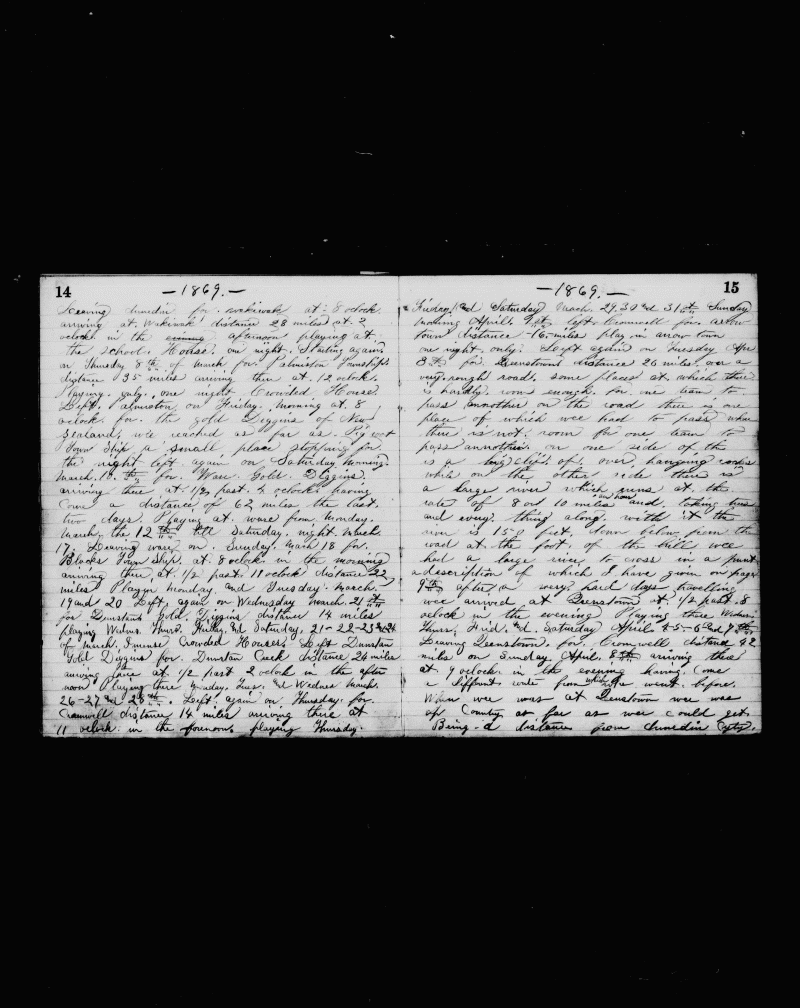 14
—1869.—
Leaving dunedin for wakiwak at 8 oclock
arriving at Wakiwak distance 28 miles at 2
oclock in the evening afternoon playing at
the School House. on night. Starting again
on Thursday 8th of March for Palmston Township
distance 35 miles arriving thir at 12 oclock.
Playing only one night Crowded House.
Left Palmston on Friday morning at 8
oclock for the gold Diggins of New
Zealand, we reached as far as Pig root
Town Ship a small place stopping for
the night left again on Saturday morning
March for Ware Gold Diggins
arriving thee at 1/2 past 4 oclock having
Come a distance of 62 miles the last
two days Playing at ware from Monday
March the 12th till Saturday night March
17. Leaving ware on Sunday March 18 for
Blacks Town Ship at 8 oclock in the morning
arriving thire at 1/2 past 11 oclock distance 22
miles Playin monday and Tuesday March
19 and 20 Left again on Wednesday March 21st
for Dunstan Gold Diggins distance 14 miles
playing Wedns Thurs. Friday and Saturday, 21-22-23 and 24
of march. Imense Crowded Houses Left Dunstan
Gold Diggins for Dunstan Creek distance 24 miles
ariving there at 1/2 past 2 oclock in the after
noon Playing there Monday, Tues. and Wednes March
26-27 and 28th. Left again on Thursday for
Cramwell distance 14 miles arriving there at
11 oclock in the forenoon playing Thursday
15
—1869.—
Friday and Saturday March 29.30 and 31st Sunday
morning April left Cromwell for arrow
town distance 16 miles play in arrow town
one night only. Left again on Tuesday Apr
3rd for Queenstown distance 26 miles over a
very rough road. some places at which there
is hardly room enough for one team to
pass annother on the road there is one
place of which wee had to pass whare
there is not room for one team to
pass annother. on one side of the
is a big Cliff of over hanging rocks
while on the other side there is
a large river which runs at the
rate of 8 or 10 miles an hour and taking trees
and every thing along with it the
river is 150 feet down below from the
road at the foot of the hill wee
had a large river to cross in a punt
a description of which I have given on page
9th after a very hard days travelling
wee arrived at Queenstown at 1/2 past 8
oclock in the evening Playing there Wednes
Thurs. Frid. and Saturday April 4-5-6 and 7th
Leaving Queenstown for Cromwell distance 42
miles on Sunday April 8th arriving there
at 9 oclock in the evening having Come
a diffrent rute from which we went before.
When wee was at Queenstown wee was
up Country as far as wee could get
Being a distance from dunedin City.